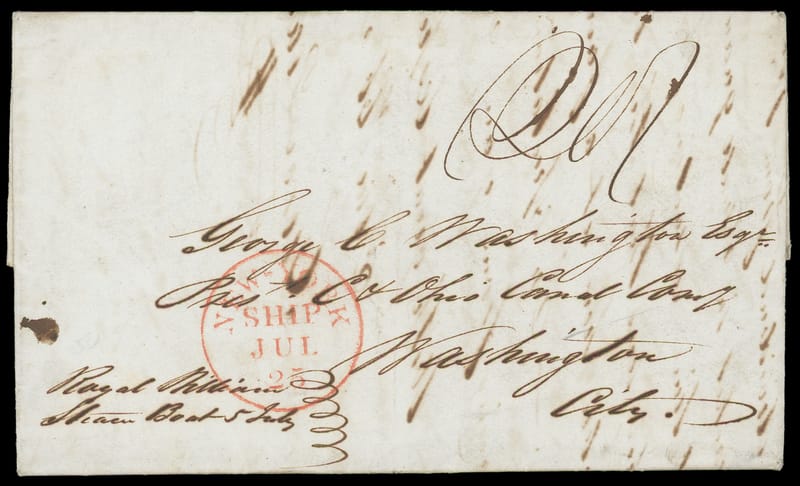 20¾
George C. Washington Esqr.
Prest. C & Ohio Canal Comy
Washington
City.
NEW-YORK
SHIP
JUL
25
Royal William
Steam Boat 5 July